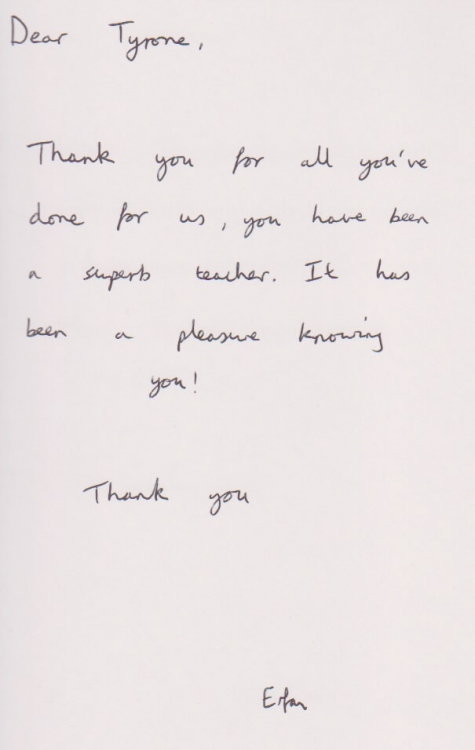 Dear Tyrone,
Thank you for all you've
done for us, you have been
a superb teacher. It has
been a pleasure knowing
you!
Thank you
Erfan